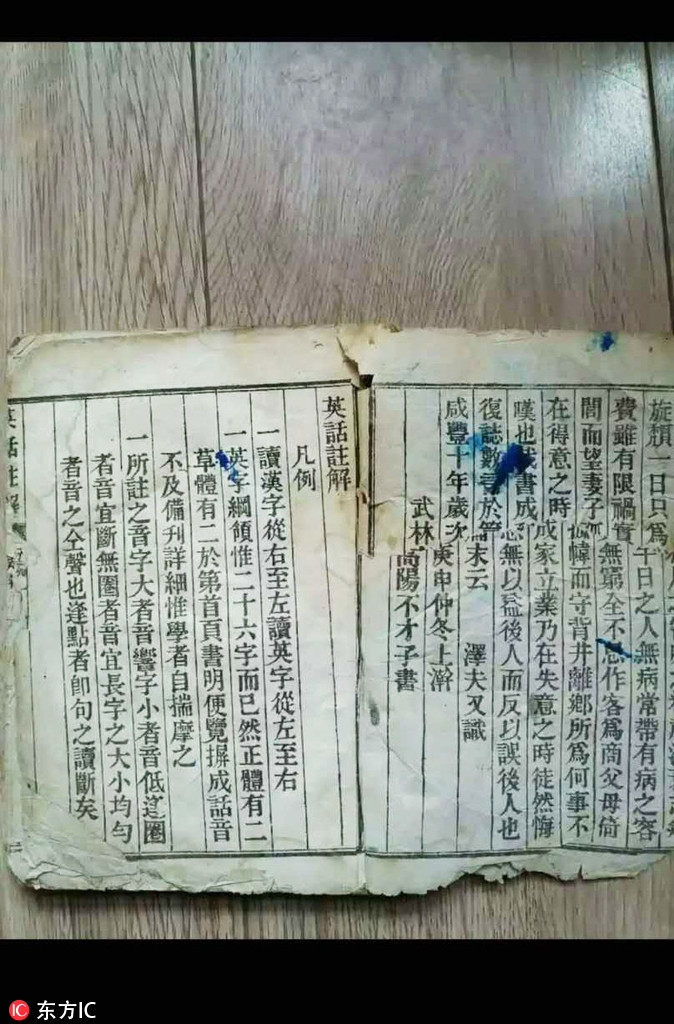 旋頹一日只爲千日之人無病常帶有病之容
費雖有限禍實無窮全不思作客爲商父母倚
閭而望妻子孤幃而守背井離鄉所爲何事不
在得意之時成家立業乃在失意之時徒然悔
嘆也哉書成恐無以益後人而反以誤後人也
復誌數言於篇末云 澤夫又識
咸豐十年歲次庚申仲冬上澣
武林高陽不才子書
英話註解
凡例
一讀漢字從右至左讀英字從左至右
一英字綱領惟二十六字而已然正體有二
草體有二於第首頁書明便覽摒成話音
不及備刊詳細惟學者自揣摩之
一所註之音字大者音響字小者音低逢圈
者音宜斷無圈者音宜長字之大小均勻
者音之仝聲也逢點者卽句之讀斷矣
英話註解
東方IC